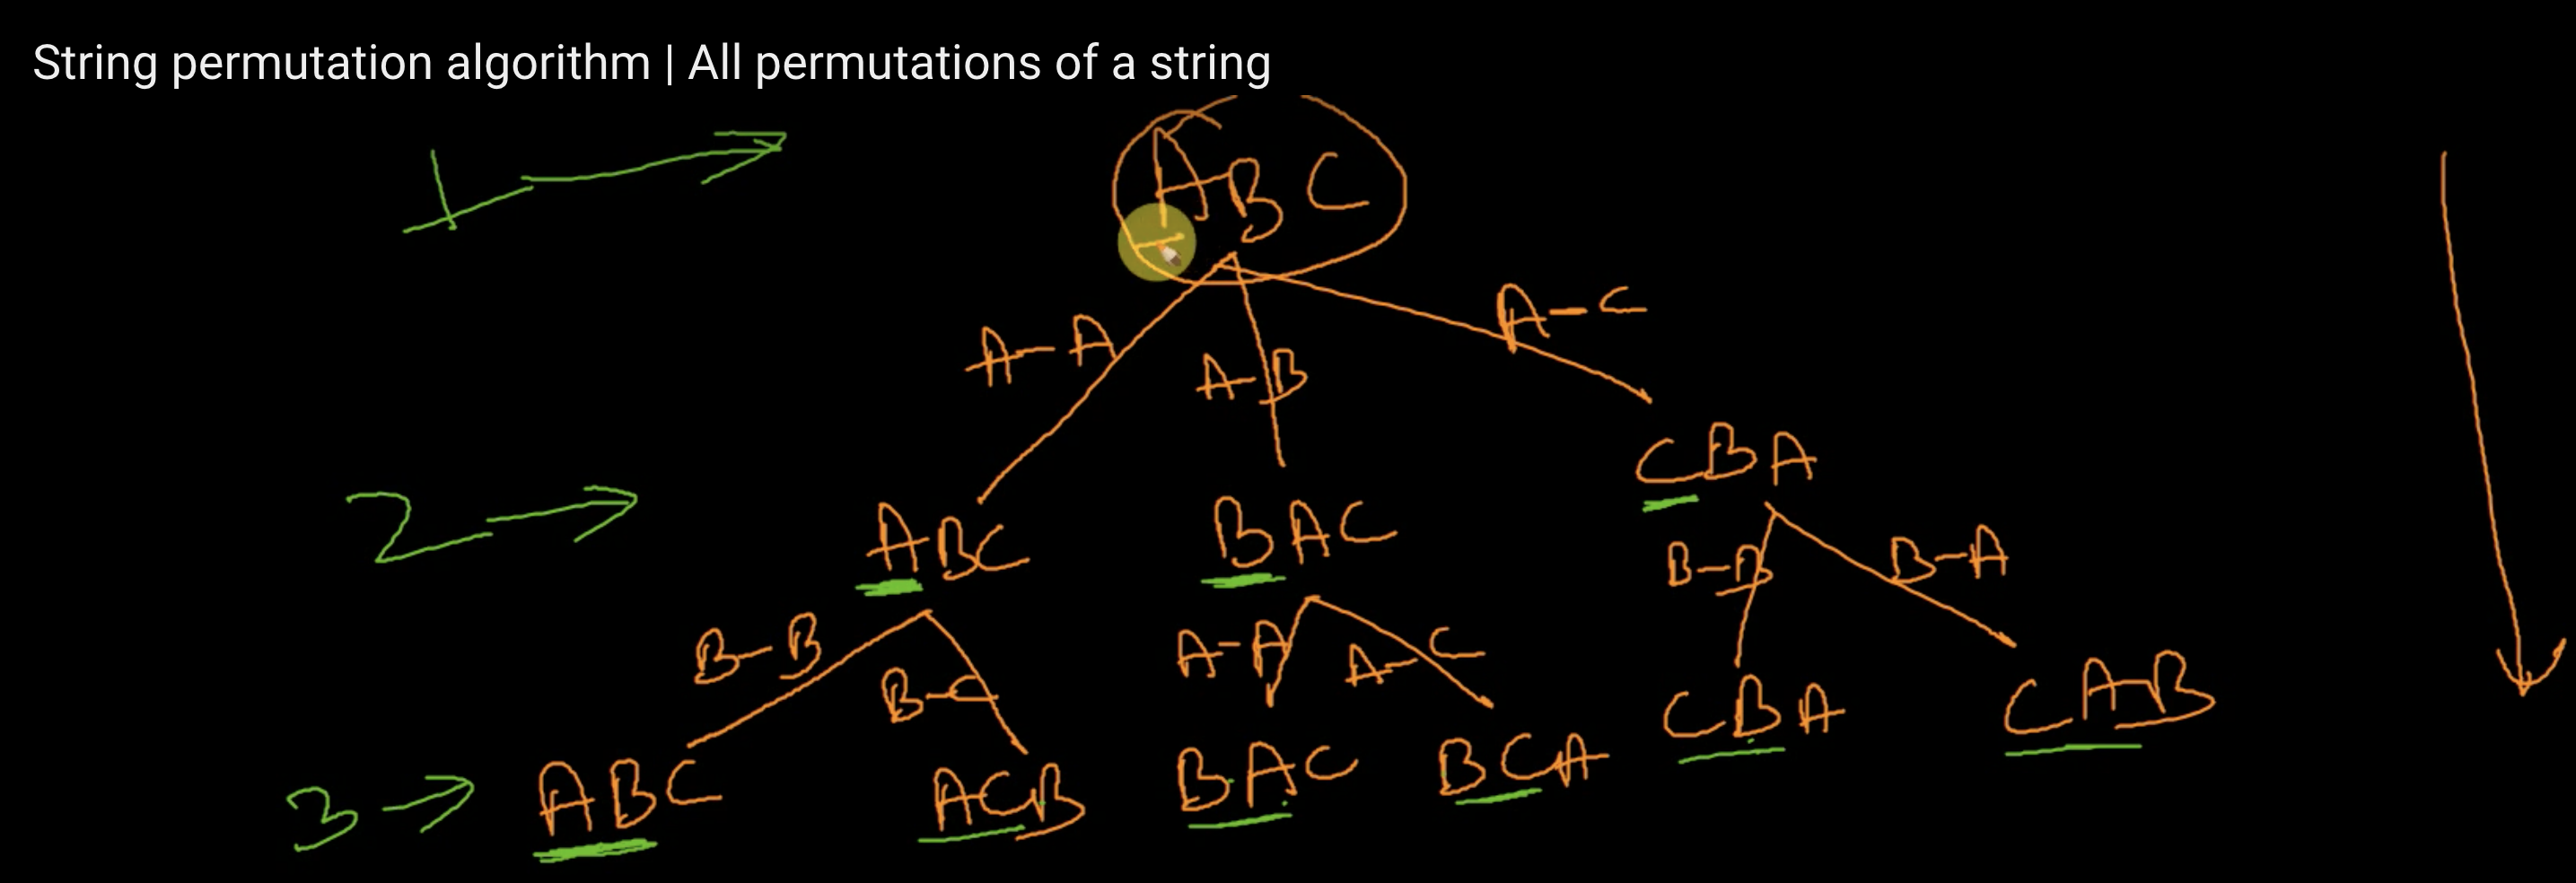 String permutation algorithm | All permutations of a string
1
ABC
A-A
A-B
A-C
2
ABC
BAC
CBA
B-B
B-C
A-A
A-C
B-B
B-A
3
ABC
ACB
BAC
BCA
CBA
CAB